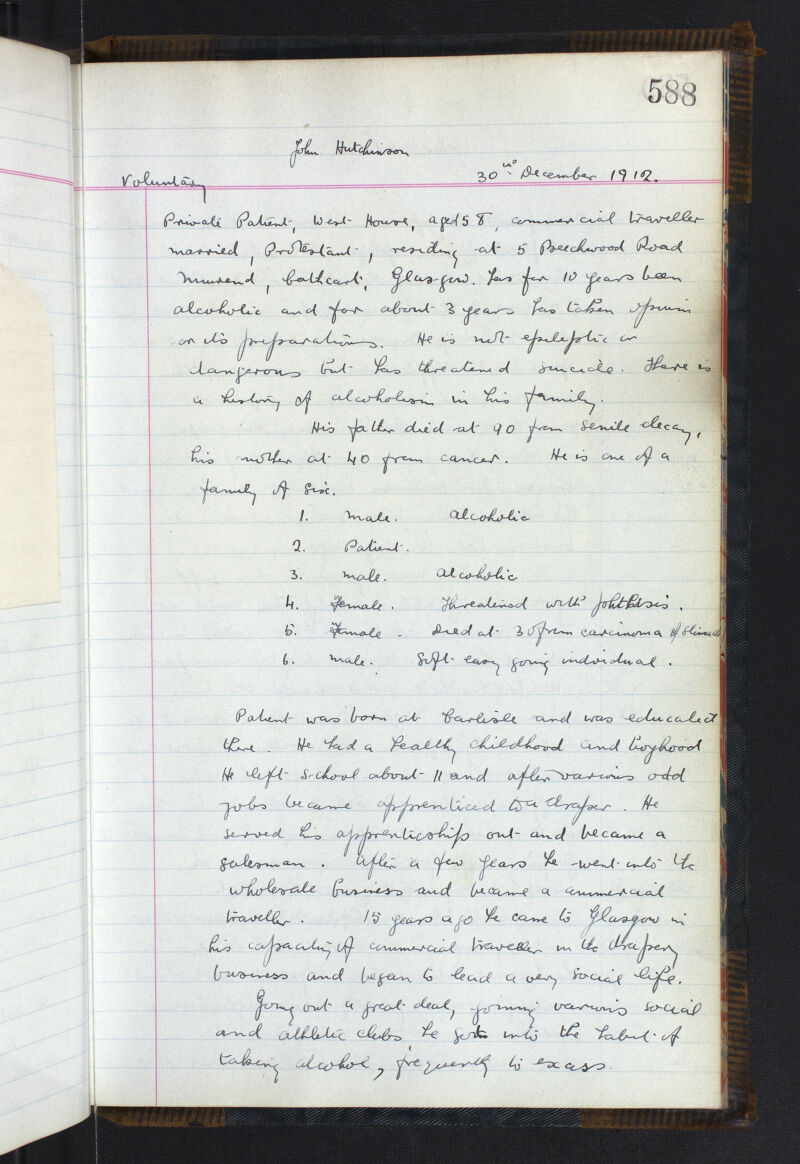 588
John Hutchinson
Voluntary 30th December 1912.
Private Patient, West House, aged 58, commercial traveller
married, Protestant, residing at 5 Beechwood Road
Muirend, Cathcart, Glasgow. Has for 10 years been
alcoholic and for about 3 years has taken opium
or its preparations. He is not epileptic or
dangerous but has threatened suicide. There is
a history of alcoholism in his family.
His father died at 90 from senile decay,
his mother at 40 from cancer. He is one of a
family of six.
1. male. alcoholic
2. Patient.
3. male. alcoholic
4. Female. Threatened with phthisis.
5. Female. Died at 30 from carcinoma of stomach
6. male. Soft easy going individual.
Patient was born at Carlisle and was educated
there. He had a healthy childhood and boyhood
He left school about 11 and after various odd
jobs became apprenticed to a draper. He
served his apprenticeship out and became a
salesman. After a few years he went into the
wholesale business and became a commercial
traveller. 15 years ago he came to Glasgow in
his capacity of commercial traveller in the drapery
business and began to lead a very social life.
Going out a great deal, joining various social
and athletic clubs he got into the habit of
taking alcohol, frequently to excess.